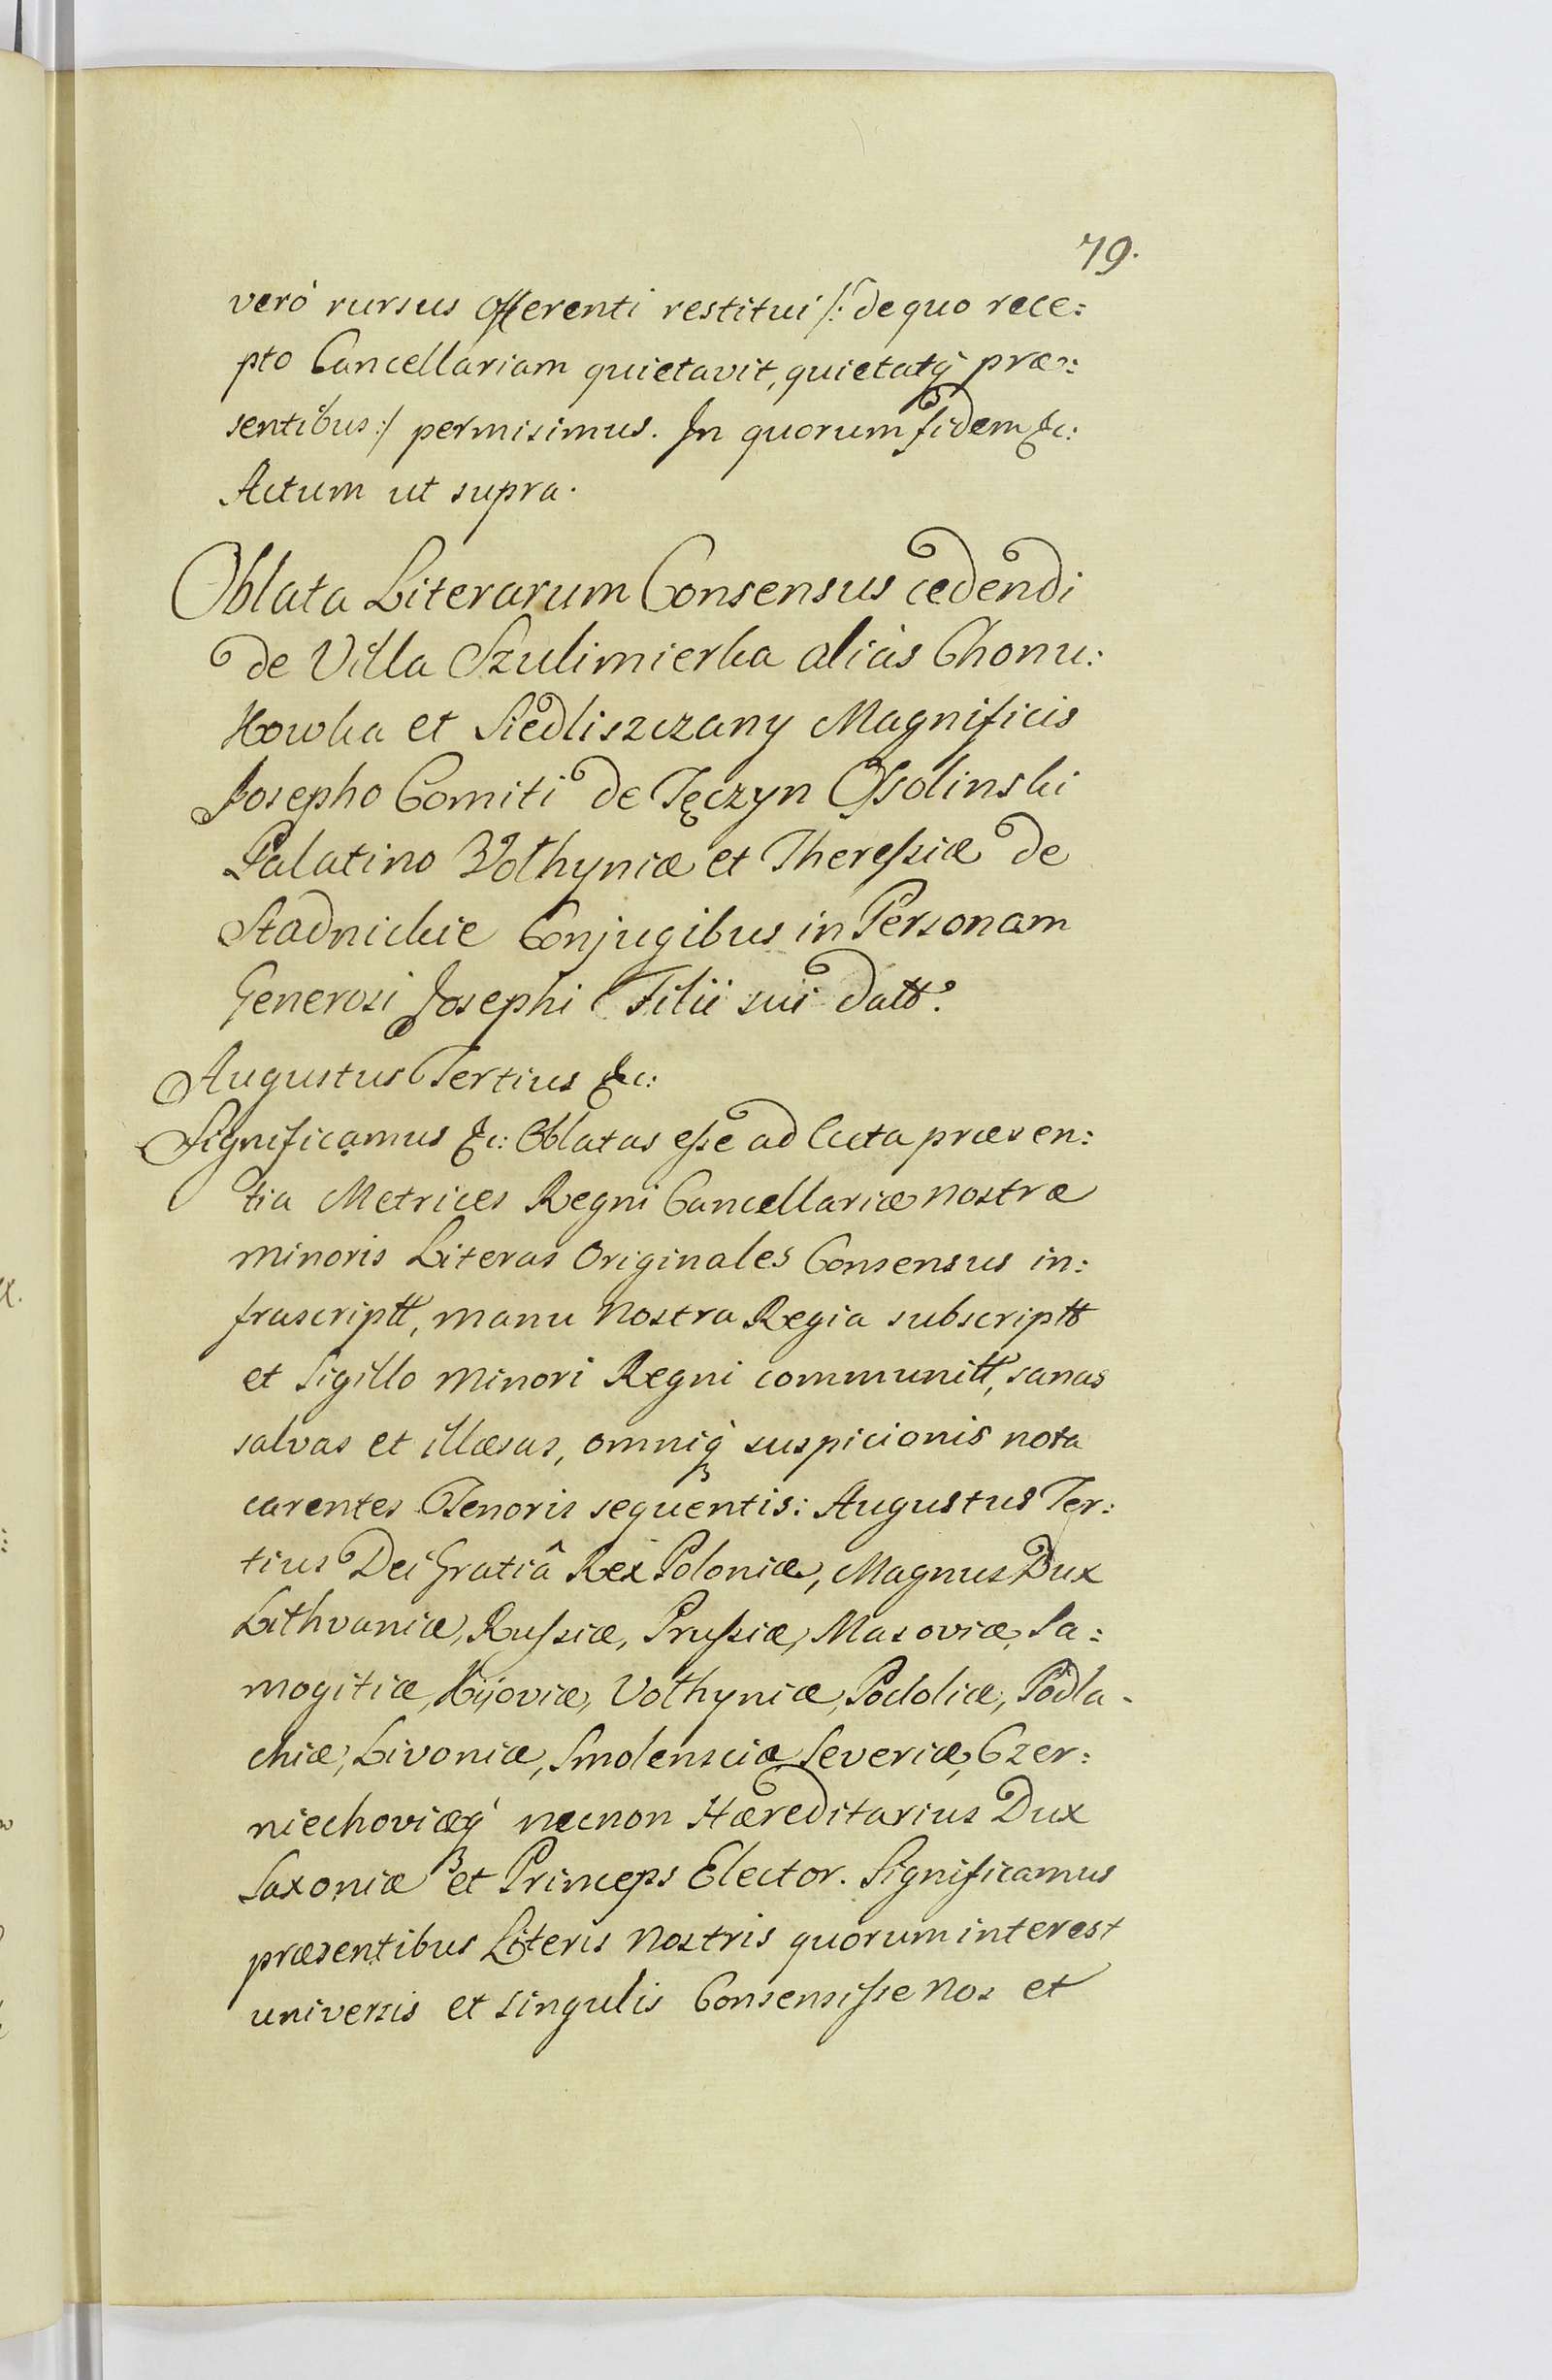 79.
verò rursus Offerenti restitui /: de quo rece:
pto Cancellariam quietavit, quietatq́ȝ præ:
sentibus :/ permisimus. In quorum fidem &c:
Actum ut supra.
Oblata Literarum Consensus cedendi
de Villa Szulimierka aliàs Chonu:
Kowka et Siedliszczany Magnificis
Josepho Comiti de Tęczyn Ossolinski
Palatino Volhyniæ et Theressiæ de
Stadnickie Conjugibus in Personam
Generosi Josephi Filii sui datt.
Augustus Tertius &c:
Significamus &c: Oblatas esse ad Acta præsen:
tia Metrices Regni Cancellariæ nostræ
minoris Literas Originales Consensus in:
frascriptt, manu nostra Regia subscriptt
et Sigillo minori Regni communitt, sanas
salvas et illæsas, omniq́ȝ suspicionis nota
carentes Tenoris sequentis: Augustus Ter:
tius Dei Gratiâ Rex Poloniæ, Magnus Dux
Lithvaniæ, Russiæ, Prussiæ, Masoviæ, Sa:
mogitiæ, Kijoviæ, Volhyniæ, Podoliæ, Podla-
chiæ, Livoniæ, Smolensciæ Severiæ, Czer:
niechoviæq́ȝ necnon Hæreditarius Dux
Saxoniæ et Princeps Elector. Significamus
præsentibus Literis nostris quorum interest
universis et singulis Consensisse nos et